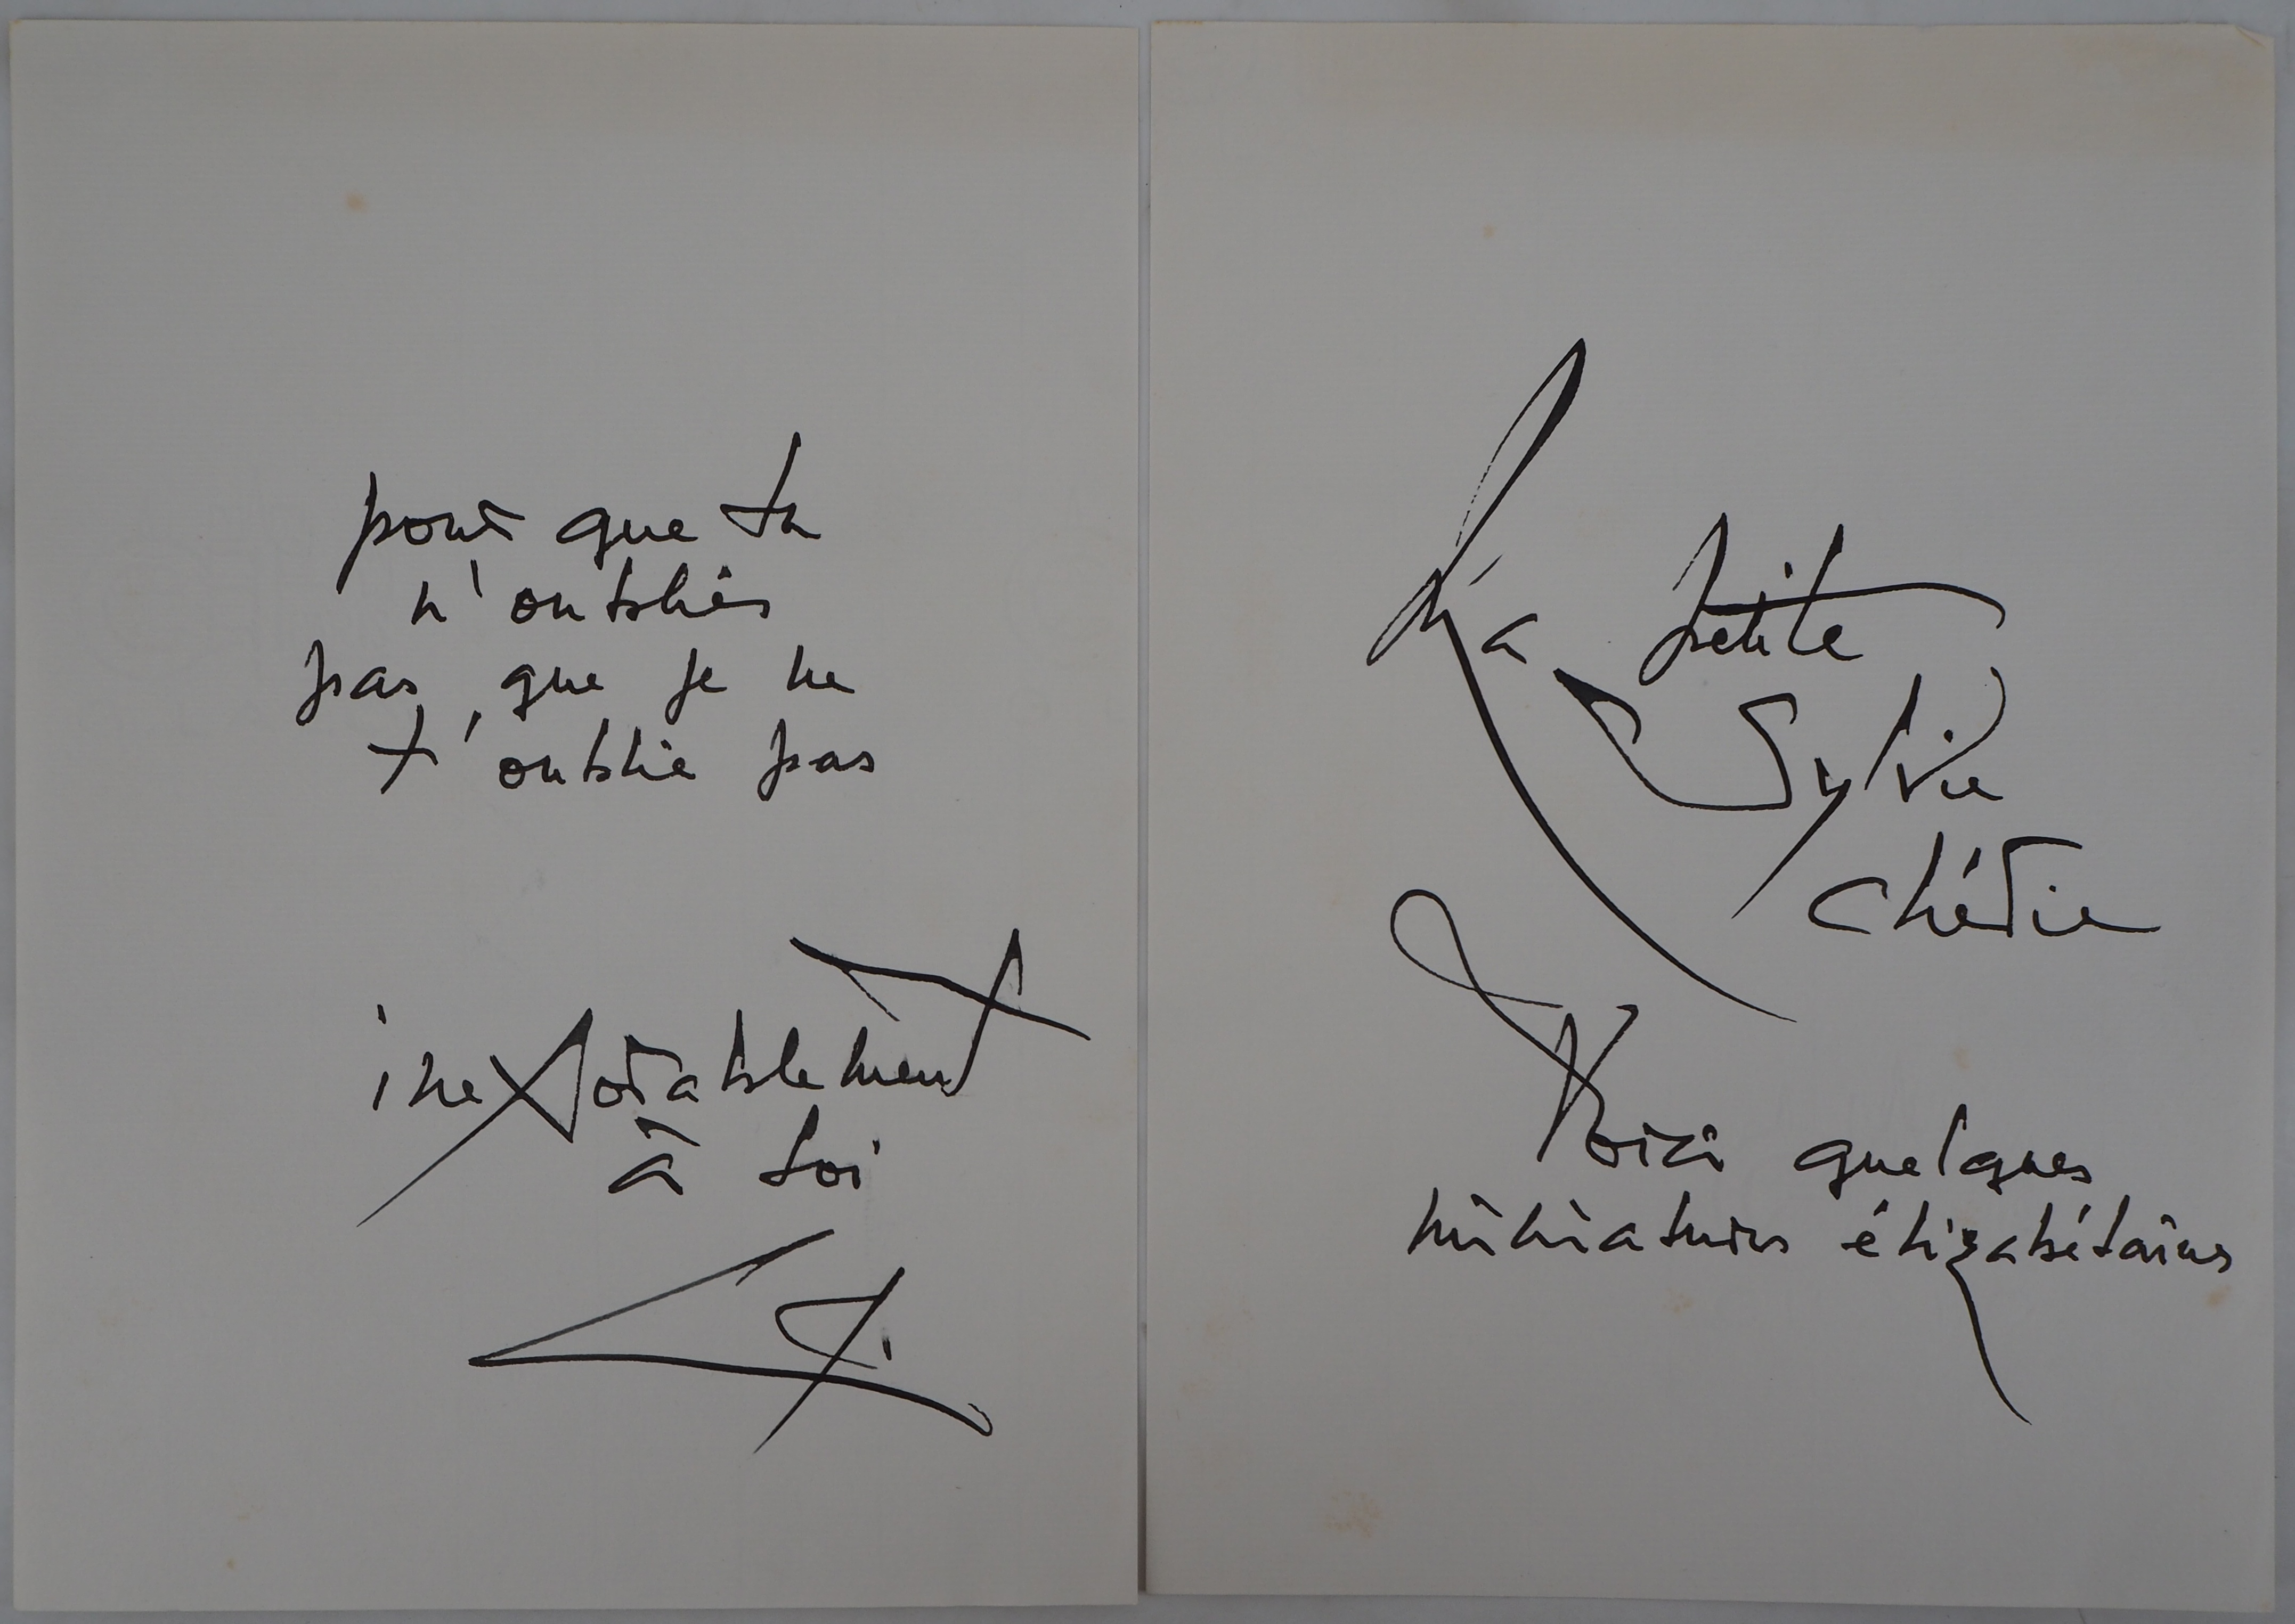 Ma petite
Sylvie
chérie
Voici quelques
miniatures élizabétaines
pour que tu
n'oublies
pas, que je ne
t'oublie pas
inexorablement
à toi